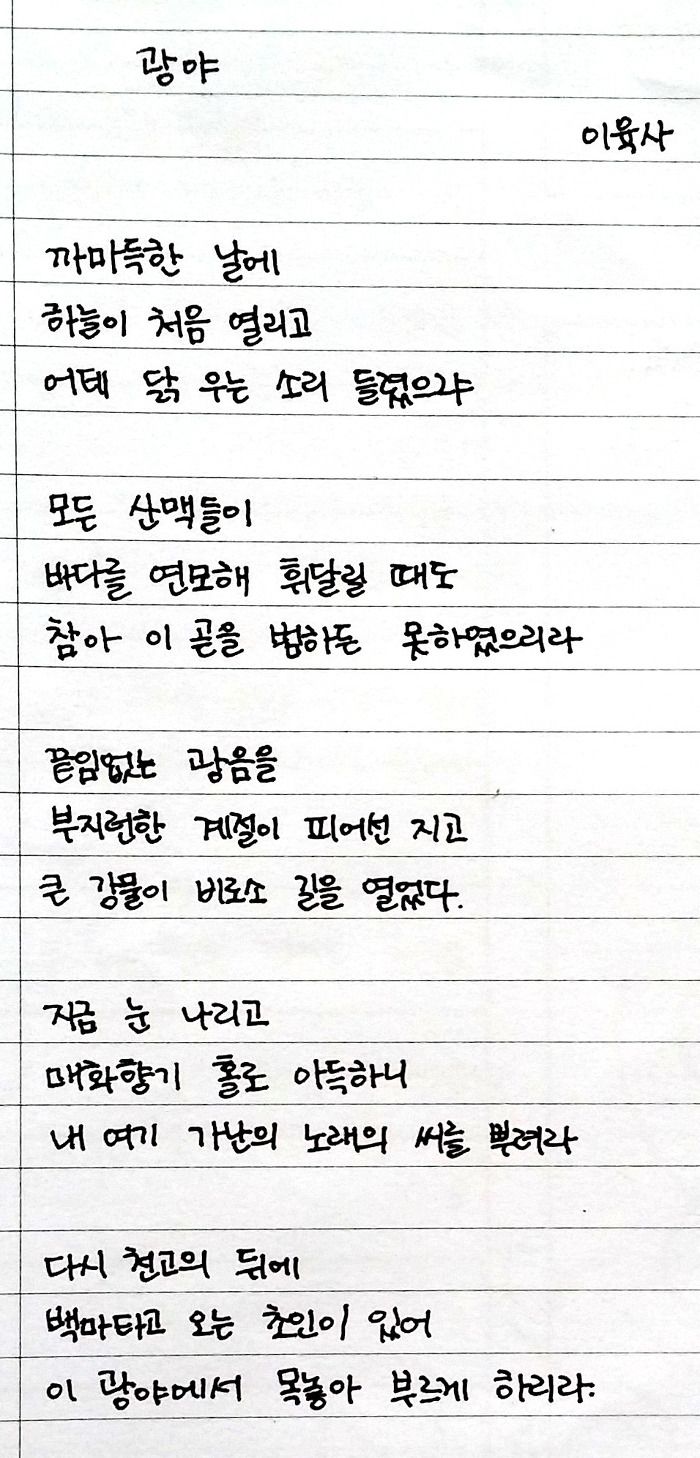 광야
이육사
까마득한 날에
하늘이 처음 열리고
어데 닭 우는 소리 들렸으랴
모든 산맥들이
바다를 연모해 휘달릴 때도
참아 이 곧을 범하든 못하였으리라
끝임없는 광음을
부지런한 계절이 피어선 지고
큰 강물이 비로소 길을 열었다.
지금 눈 나리고
매화향기 홀로 아득하니
내 여기 가난의 노래의 씨를 뿌려라
다시 천고의 뒤에
백마타고 오는 초인이 있어
이 광야에서 목놓아 부르게 하리라.